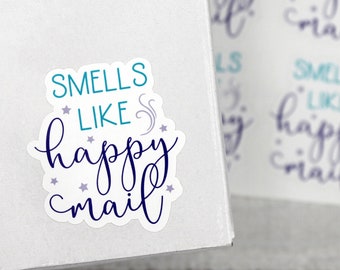 SMELLS
LIKE
happy
mail
SMELLS
LIKE
happy
mail